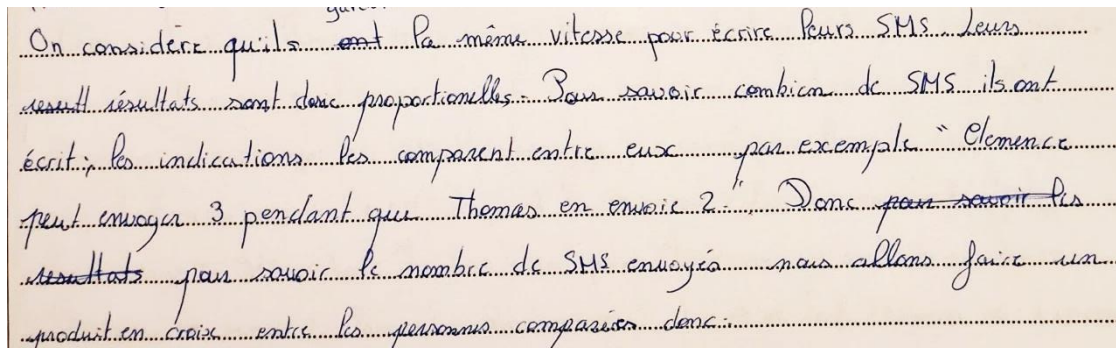 On considère qu'ils ont la même vitesse pour écrire leurs SMS. Leurs
résultats sont donc proportionelles. Pour savoir combien de SMS ils ont
écrit, les indications les comparent entre eux par exemple "Clemence
peut envoyer 3 pendant que Thomas en envoie 2." Donc pour savoir les
resultats pour savoir le nombre de SMS envoyés nous allons faire un
produit en croix entre les personnes comparées donc: